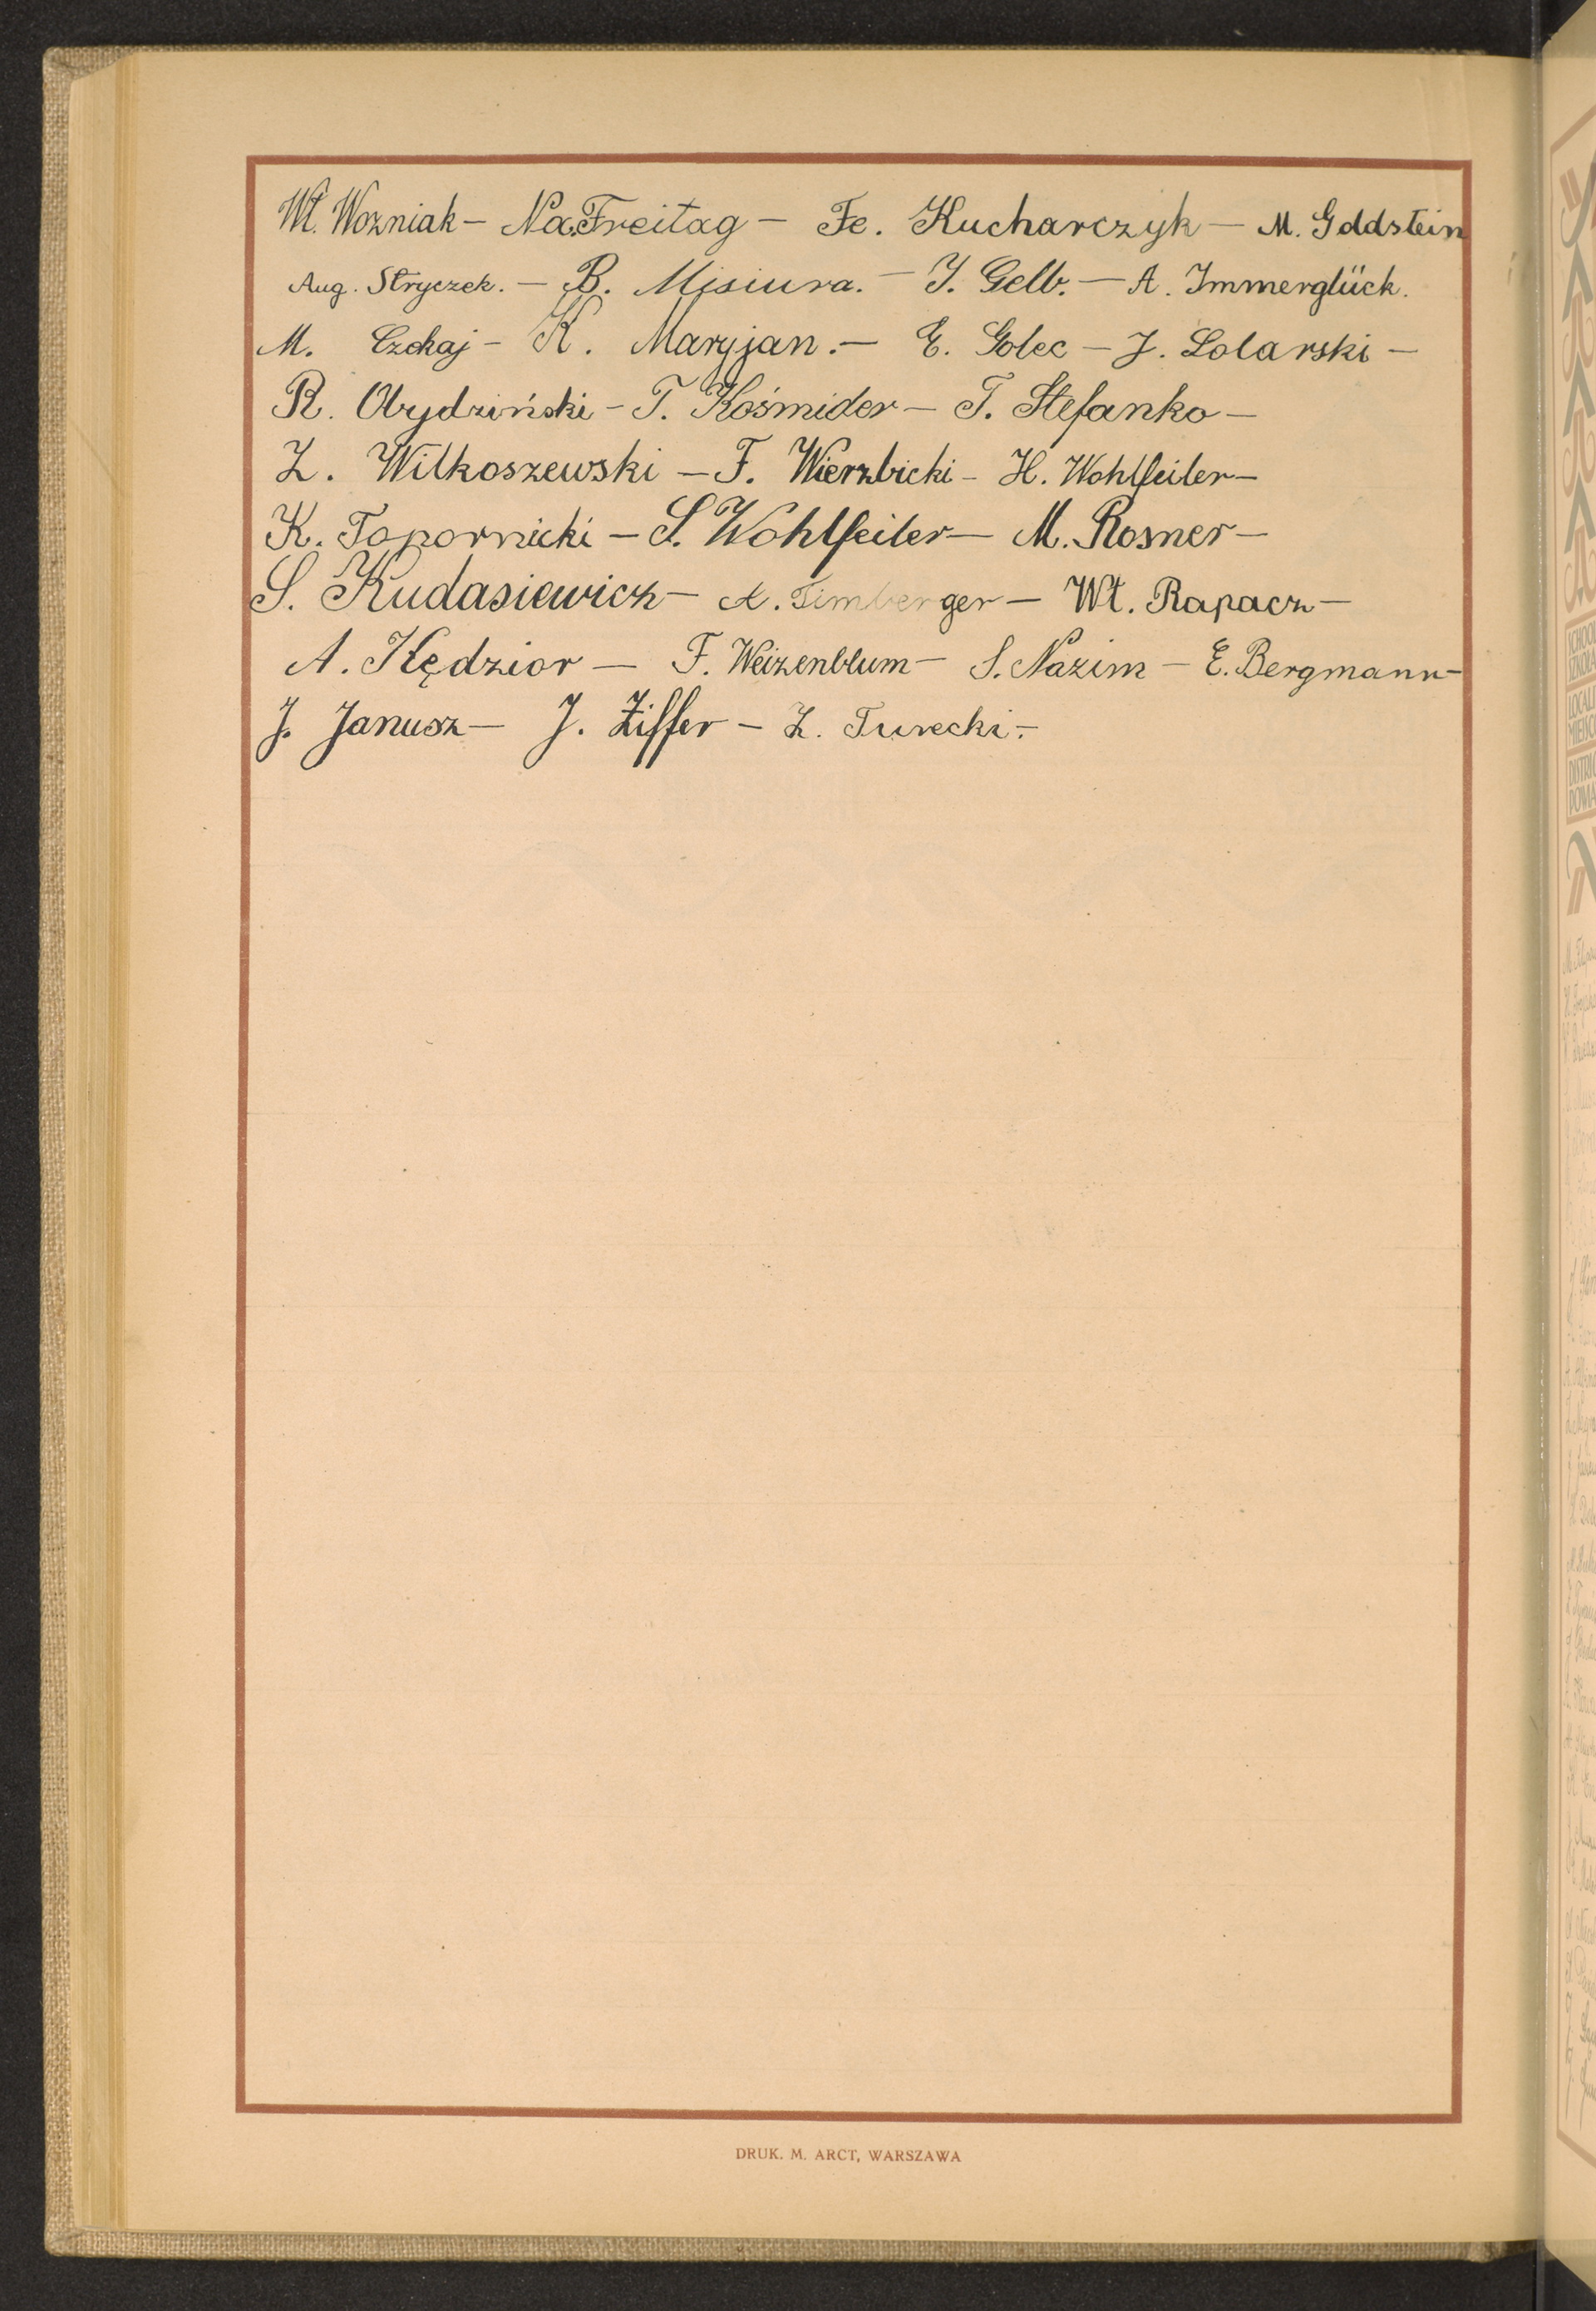 Wł. Wozniak – Na. Freitag – Fe. Kucharczyk – M. Goldstein
Aug. Stryczek. – B. Misiura. – J. Gelb. – A. Immerglück.
M. Czekaj – K. Maryjan. – E. Golec – J. Solarski –
R. Obydziński – T. Kośmider – T. Stefanko –
Z. Wilkoszewski – F. Wierzbicki – H. Wohlfeiler –
K. Topornicki – S. Wohlfeiler – M. Rosner –
S. Kudasiewicz – A. Timberger – Wł. Rapacz –
A. Kędzior – F. Weizenblum – S. Nazim – E. Bergmann –
J. Janusz – J. Ziffer – Z. Turecki. –
DRUK. M. ARCT, WARSZAWA